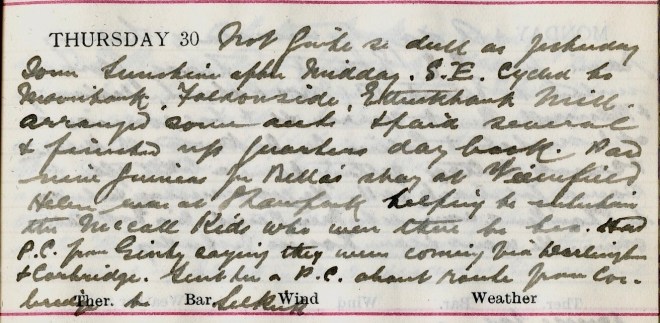 THURSDAY 30 Not quite so dull as yesterday
Some Sunshine after Midday. S.E. Cycled to
Moorbank, Faldonside, Ettrickbank Mill.
arranged some accts & paid several
& finished up quarters day book. Paid
nine Guineas for Bella's stay at
Helen was at helping to entertain
the McCall Kids who were there to tea. Had
P.C. from saying they were coming via Darlington
& Corbridge. Sent her a P.C. about route from Cor-
bridge to Selkirk
Ther. Bar. Wind Weather